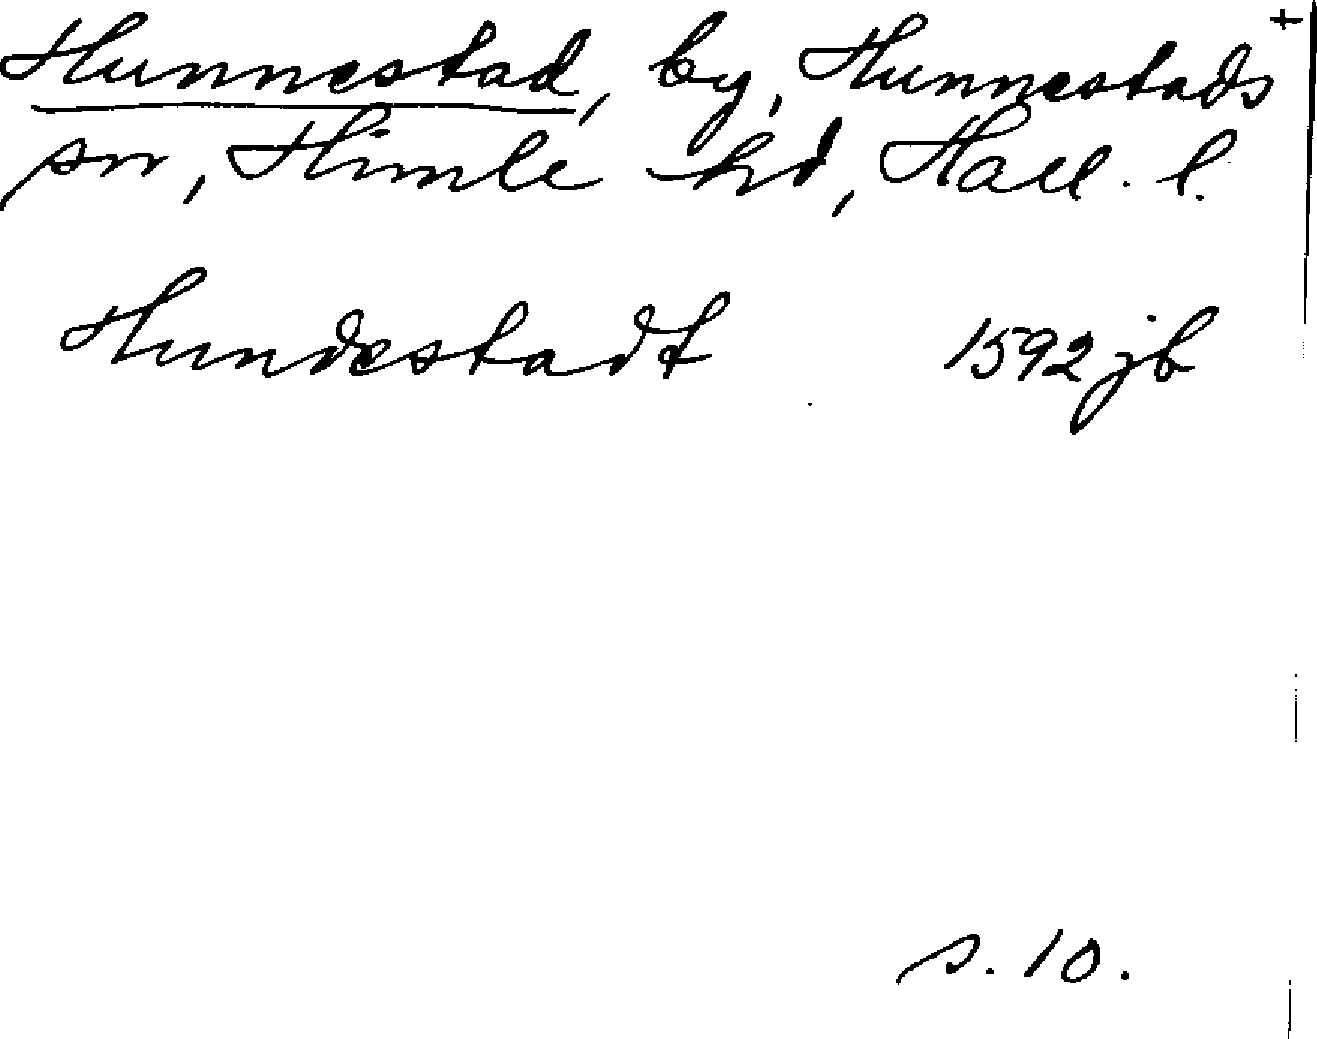 Hunnestad, by, Hunnestads +
sn, Himle hd, Hall. l.
Hundestadt 1592 jb
s. 10.